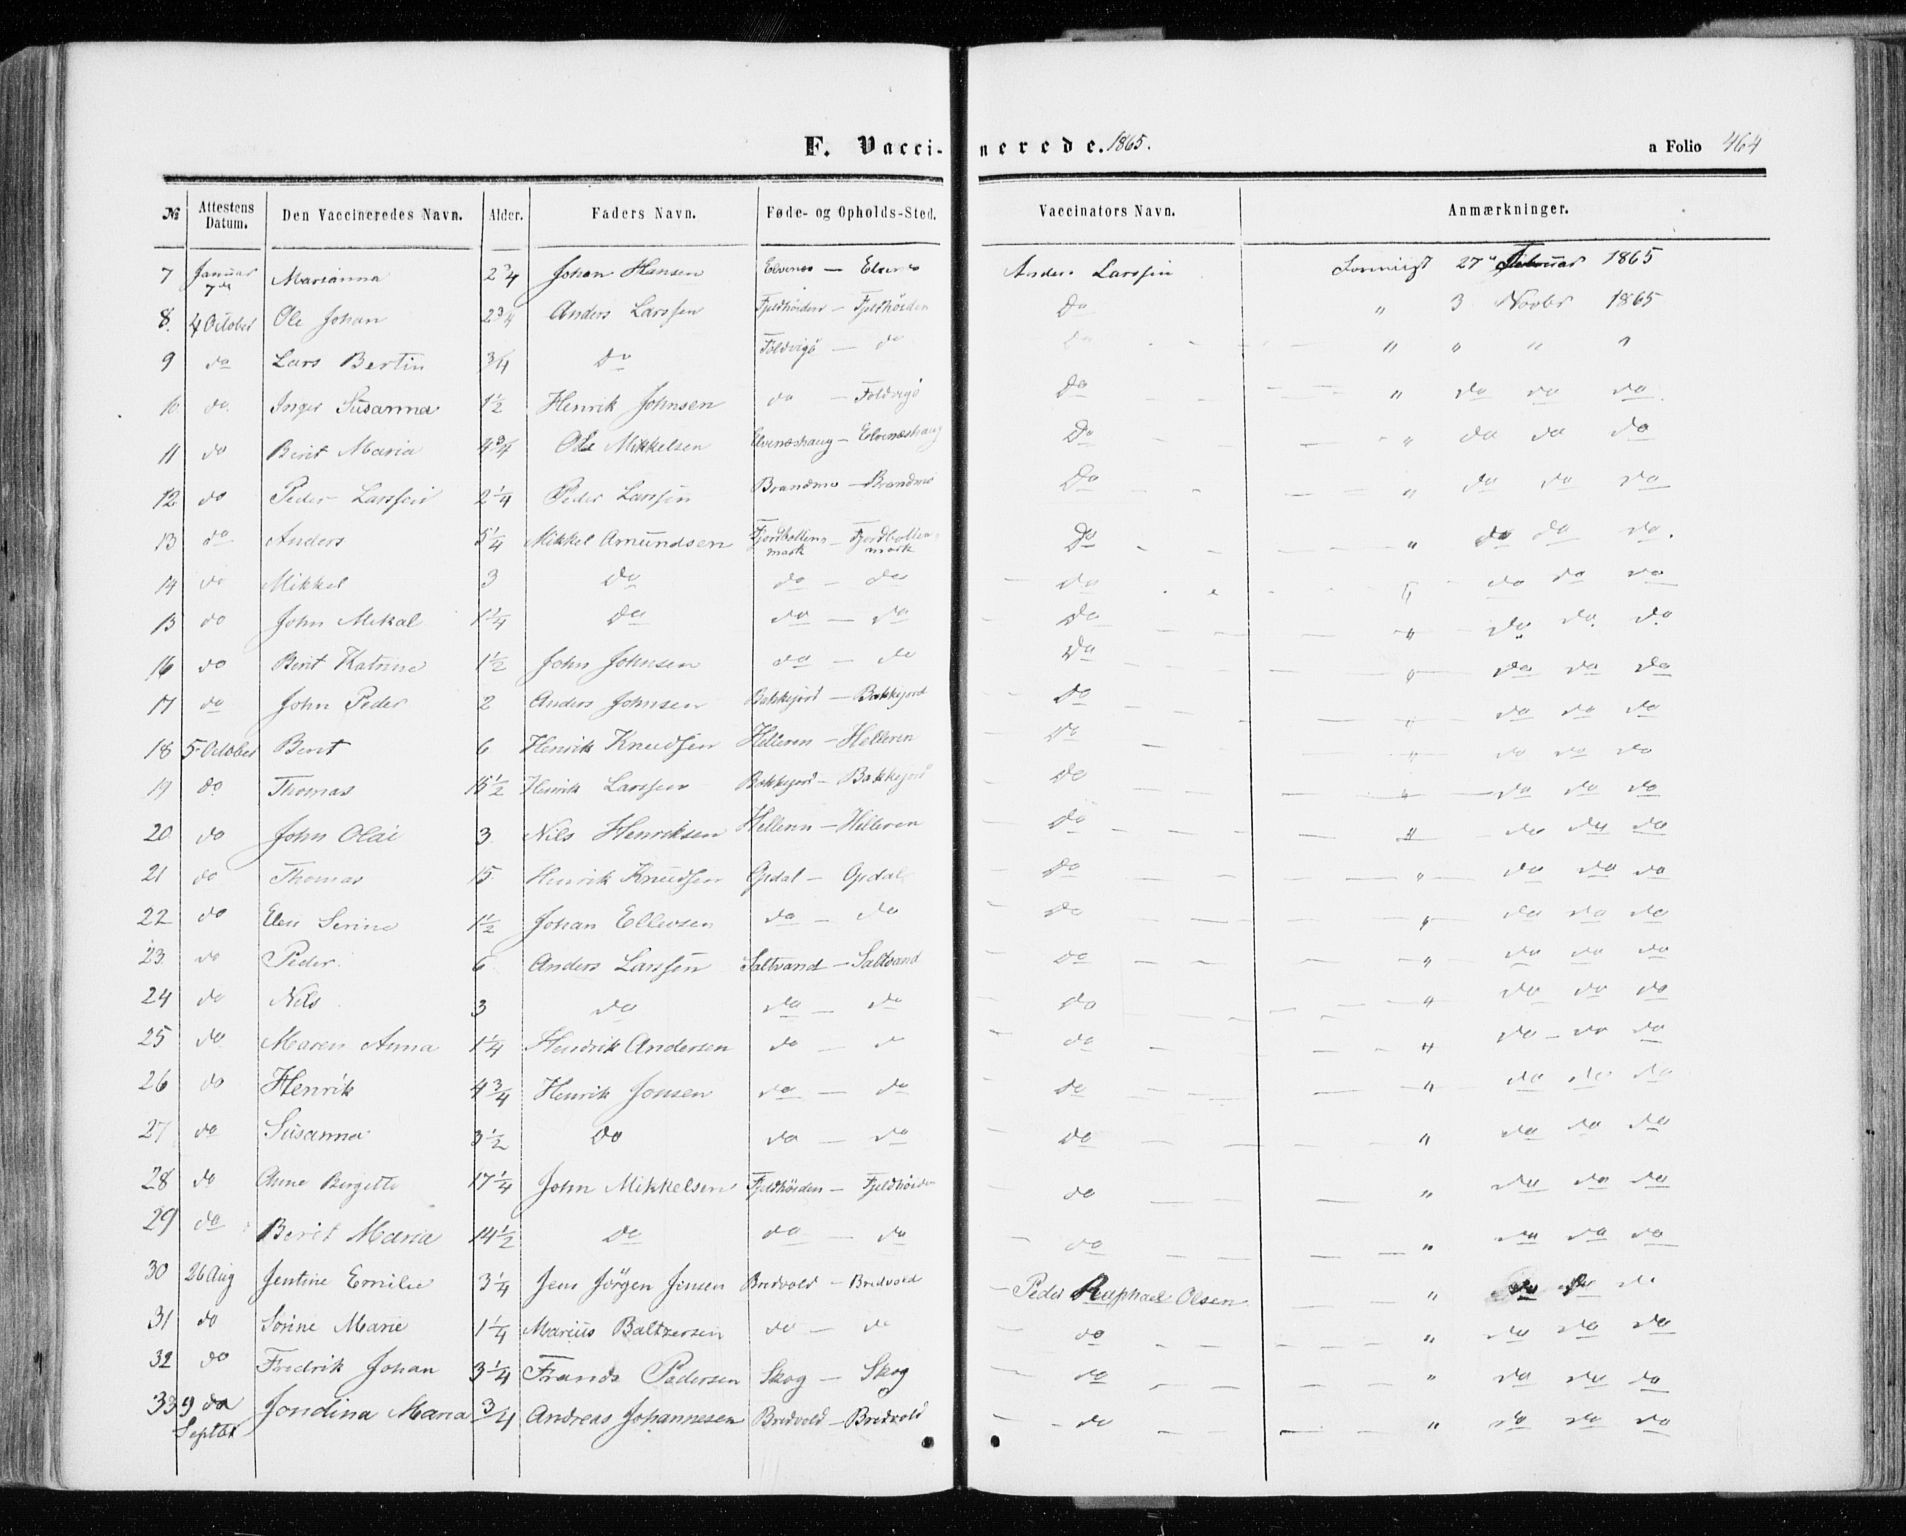 F. Vaccinerede. 1865. a Folio 464
№ Attestens Datum. Den Vaccineredes Navn. Alder. Faders Navn. Føde- og Opholds-Sted. Vaccinators Navn. Anmærkninger.
7 Januar 7de Marianna 2 3/4 Johan Hansen Elvenes — Elvenes Anders Larssen 27 Februar 1865
8. 4 October Ole Johan 2 3/4 Anders Larssen Fjeldhöiden — Fjeldhöiden Do " 3 Novbr 1865
9 do Lars Bertin 3/4 Do Foldvigö — do Do " " " "
10 do. Inger Susanna 1 1/2 Henrik Johnsen do — Foldvigö Do " do do do.
11 do Berit Maria 4 3/4 Ole Mikkelsen Elvenæshaug — Elvenæshaug Do " do do do
12 do Peder Larssen 2 1/4 Peder Larssen Brandmo — Brandmo Do " do do do
13 do Anders 5 1/4 Mikkel Amundsen Fjordbotten-mark — Fjordbotten-mark Do " do do do.
14 do Mikkel 3 Do do — do do " do do do
15 do John Mikal 1 1/4 Do do — do Do " do do do
16 do Berit Katrine 1 1/2 John Johnsen do — do Do " do do do
17 do John Peder 2 Anders Johnsen Bakkejord — Bakkejord Do " do do do
18 5 October Berit 6 Henrik Knudsen Helleren — Helleren Do " do do do
19 do Thomas 15 1/2 Henrik Larssen Bakkejord — Bakkejord Do " do do do
20 do John Olai 3. Nils Henriksen Helleren — Helleren Do " do do do
21 do Thomas 15 Henrik Knudsen Opdal — Opdal Do " do do do
22 do Elen Serine 1 1/2 Johan Ellevsen do — do Do " do do do
23 do Peder 6 Anders Larssen Saltvand — Saltvand Do " do do do
24 do Nils 3 do do — do Do " do do do
25 do Maren Anna 1 1/4 Hendrik Andersen do — do do " do do do
26 do Henrik 4 3/4 Henrik Jonsen do — do Do " do do do
27 do Susanna 3 1/2 Do do — do Do " do do do
28 do Anne Birgitte 17 1/4 John Mikkelsen Fjeldhöiden — Fjeldhöiden do " do do do
29 do Berit Maria 14 1/2 Do do — do do " do do do
30 26 Aug Jentine Emilie 3 1/4 Jens Jörgen Jensen Bredvold — Bredvold Peder Raphael Olsen " do do do
31 do Sörine Marie 1 1/4 Marius Baltzersen do — do do " do do do
32 do Fredrik Johan 3 1/4 Frands Pedersen Skog — Skog do " do do do
33 9 da Septbr Jondina Maria 3/4 Andreas Johannesen Bredvold — Bredvold do " do do do